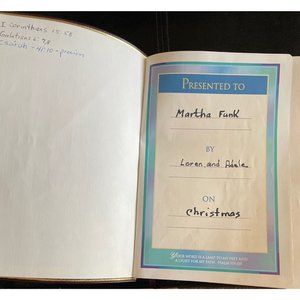 I Corinthians 15:58
Galatians 6:7,8
Isaiah - 41:10 - promises
PRESENTED TO
Martha Funk
BY
Loren and Adele
ON
Christmas
YOUR WORD IS A LAMP TO MY FEET AND
A LIGHT FOR MY PATH. PSALM 119:105